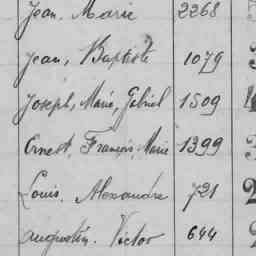 Jean, Marie 2268
Jean, Baptiste 1079
Joseph, Marie, Gabriel 1509
Ernest, François, Marie 1399
Louis, Alexandre 721
Augustin, Victor 644